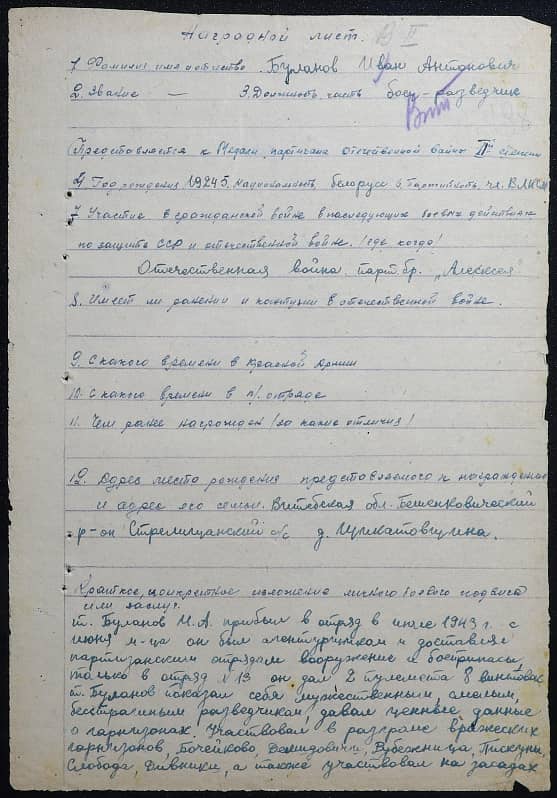 Наградной лист.
1. Фамилия имя отчество Буланов Иван Антонович
2. Звание — 3. Должность, часть боец-разведчик
Представляется к Медали партизана отечественной войны II степени
4. Год рождения 1924 5. Национальность белорус 6. Партийность чл. ВЛКСМ
7. Участие в гражданской войне в последующих боевых действиях
по защите СССР и отечественной войне. (где когда)
Отечественная война парт. бр. „Алексея"
8. Имеет ли ранения и контузии в отечественной войне.
9. С какого времени в Красной Армии
10. С какого времени в п/отряде
11. Чем ранее награжден (за какие отличия)
12. Адрес место рождения представляемого к награждению
и адрес его семьи. Витебская обл. Бешенковический
р-он Стрелищанский с/с д.
Краткое, конкретное изложение личного боевого подвига
или заслуг.
т. Буланов И. А. прибыл в отряд в июле 1943 г. с
июня м-ца он был агентурщиком и доставлял
партизанским отрядам вооружение и боеприпасы,
только в отряд № 13 он дал 2 пулемета 8 винтовок
т. Буланов показал себя мужественным, смелым,
бесстрашным разведчиком, давал ценные данные
о гарнизонах. Участвовал в разгроме вражеских
гарнизонов, Бочейково, Демидовичи, Вубежница, Пискуны,
Слобода, Дивники, а также участвовал на засадах